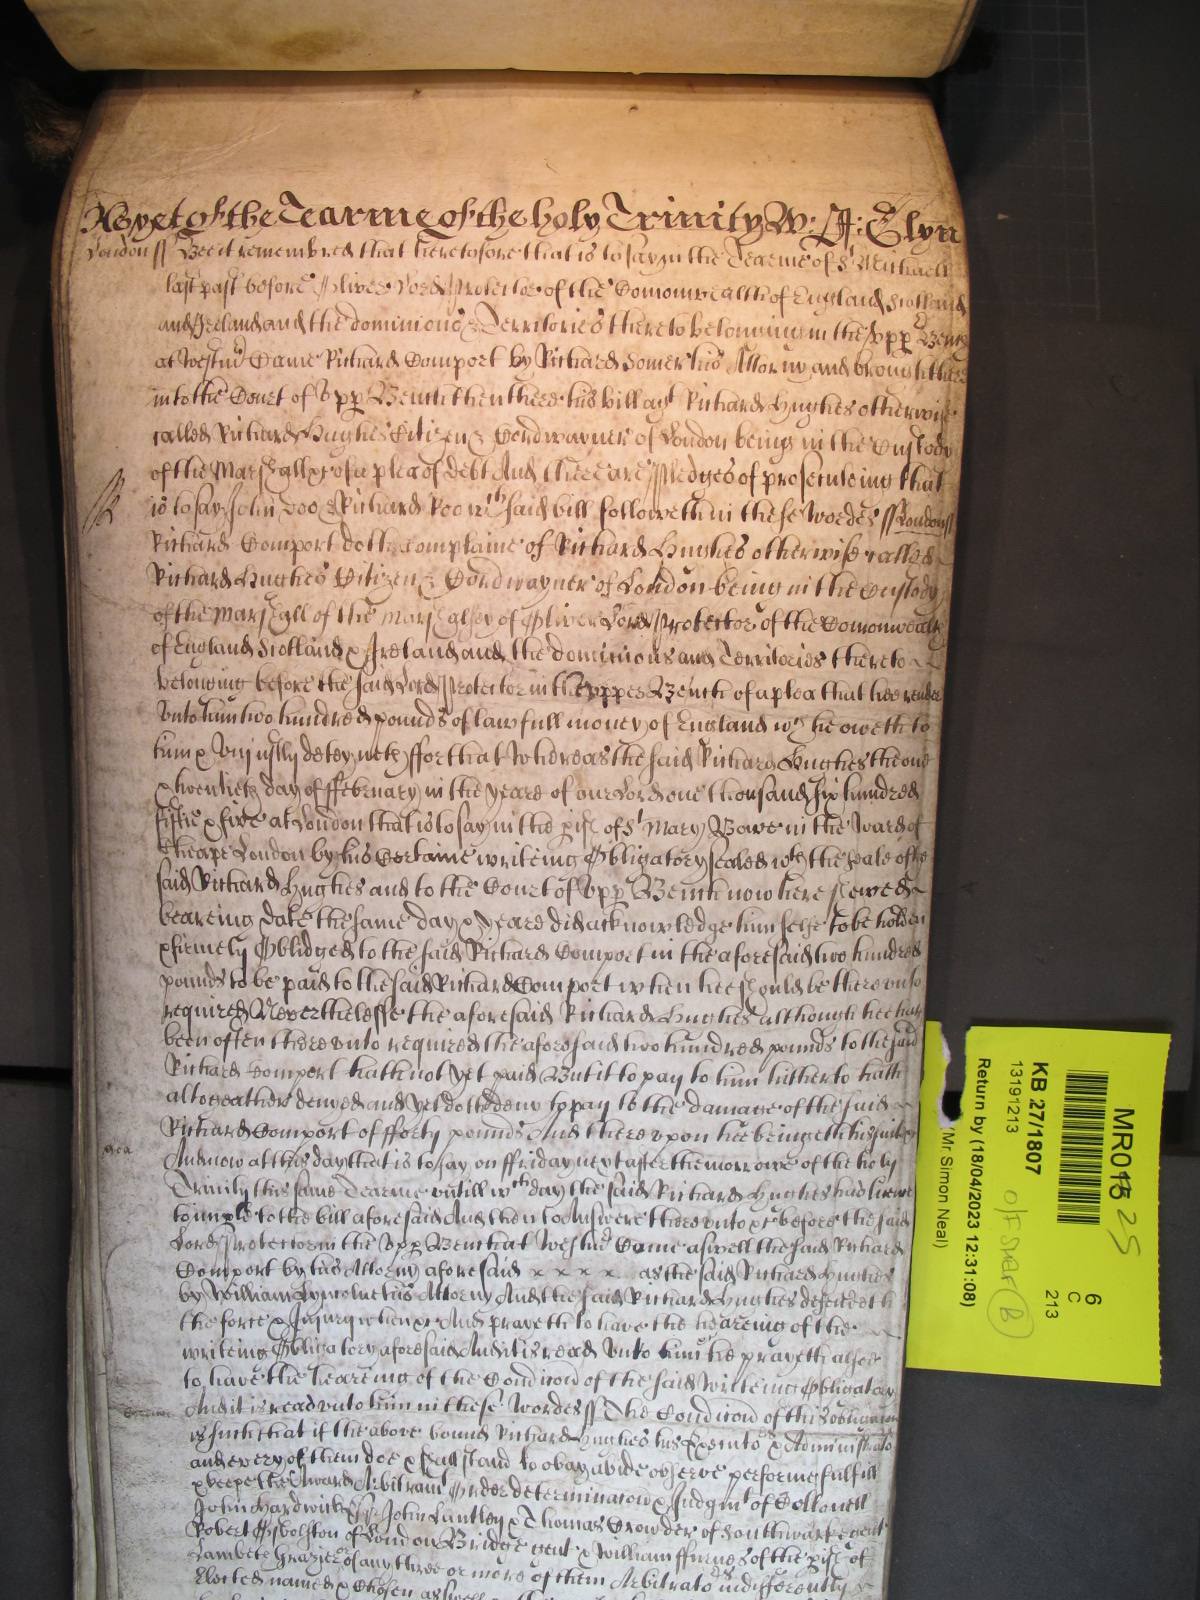 As yet of the Tearme of the holy Trinity W: &: Glyn
London ss Bee it remembred that heretofore that is to say in the Tearme of St Michaell
last past before Oliver Lord Protector of the Comonwealth of England Scotland
and Ireland and the dominions & Territories thereto belonging in the upp Bench
at Westmr Came Richard Comport by Richard Somer his Attorny and brought here
into the Court of upp Bench then there his bill agt Richard Hughes otherwise
called Richard Hughes Citizen & Cordwayner of London being in the Custody
of the Marshall &c of a plea of debt And there are Pledges of prosecuteing that
is to say John Doo & Richard Roo wch said bill followeth in these wordes ss London ss
Richard Comport doth complaine of Richard Hughes otherwise called
Richard Hughes Citizen & Cordwayner of London being in the Custody
of the Marshall of the Marshalsey of Oliver Lord Protector of the Comonwealth
of England Scotland & Ireland and the dominions and Territories thereto
belonging before the said Lord Protector in the upper Bench of a plea that hee render
unto him two hundred pounds of lawfull money of England wch he oweth to
him & unjustly deteyneth ffor that whereas the said Richard Hughes the one
& twentieth day of ffebruary in the yeare of our Lord one thousand six hundred
fiftie & five at London that is to say in the pish of St Mary Bowe in the Ward of
Cheape London by his Certaine writeing Obligatory sealed wth the seale of the
said Richard Hughes and to the Court of upp Bench now here shewed
beareing date the same day & yeare did acknowledge him selfe to be holden
& firmely Oblidged to the said Richard Comport in the aforesaid two hundred
pounds to be paid to the said Richard Comport when hee should be thereunto
required Neverthelesse the aforesaid Richard Hughes although hee hath
been often thereunto required the aforesaid two hundred pounds to the said
Richard Comport hath not yet paid But it to pay to him hitherto hath
altogeather denyed and yet doth deny to pay to the damage of the said
Richard Comport of fforty pounds And thereupon hee bringeth his suite &c
And now at this day that is to say on ffriday next after the morrowe of the holy
Trinity this same Tearme untill wch day the said Richard Hughes had licence
to imple to the bill aforesaid And then to Answere thereunto &c before the said
Lord Protector in the upp Bench at Westmr Came aswell the said Richard
Comport by his Attorny aforesaid x x x x as the said Richard Hughes
by William his Attorny And the said Richard Hughes defendeth
the force & Injury when &c And prayeth to have the heareing of the
writeing Obligatory aforesaid And it is read unto him he prayeth alsoe
to have the heareing of the Condicion of the said Writeing Obligatory
And it is read unto him in these Wordes ss The Condicion of this obligacion
is such that if the above bound Richard Hughes his Executors & Administrators
and every of them doe & shall stand to obay abide observe performe fulfill
& keepe the Award Arbitramt Order determinacion & Judgmt of Collonell
John Hardwick John Luntley & Thomas Crowder of Southwarke gent
Robert Osbolston of London Bridge gent & William ffurnes of the pish of
Lambeth Grazier or any three or more of them Arbitrators indifferently
Elected named & Chosen aswell
MR01 25
6
C
213
KB 27/1807
13191213
Return by (18/04/2023 12:31:08)
(Mr Simon Neal)